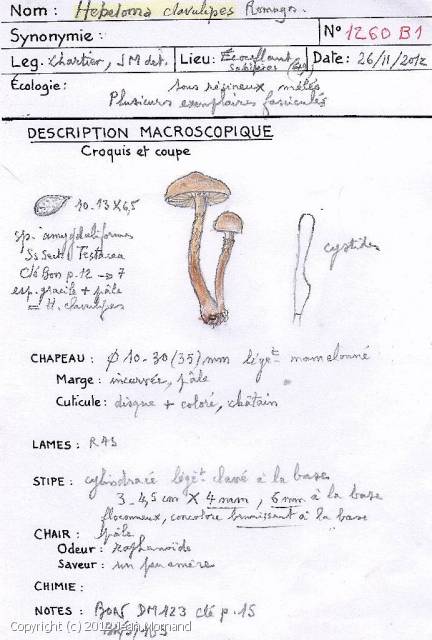 Nom : Hebeloma clavulipes Romagn.
Synonymie :
N° 1260 B1
Leg. Chartier, JM det.
Lieu : Écouflant
Sablières
Date : 26/11/2012
Écologie : sous résineux mêlés
Plusieurs exemplaires fasciculés
DESCRIPTION MACROSCOPIQUE
Croquis et coupe
10-13 X 6,5
sp. amygdaliformes
Ss Sect. Testacea
Clé Bon p.12 → 7
esp. gracile + pâle
= H. clavulipes
cystides
CHAPEAU : φ 10-30 (35) mm légèt mamelonné
Marge : incurvée, pâle
Cuticule : disque + coloré, châtain
LAMES : RAS
STIPE : cylindracé légèt clavé à la base
3-4,5 cm X 4 mm, 6 mm à la base
floconneux, concolore brunissant à la base
CHAIR : pâle
Odeur : raphanoïde
Saveur : un peu amère
CHIMIE :
NOTES : Bon DM 123 clé p.15
Copyright (c) 2012 Jean Mornand